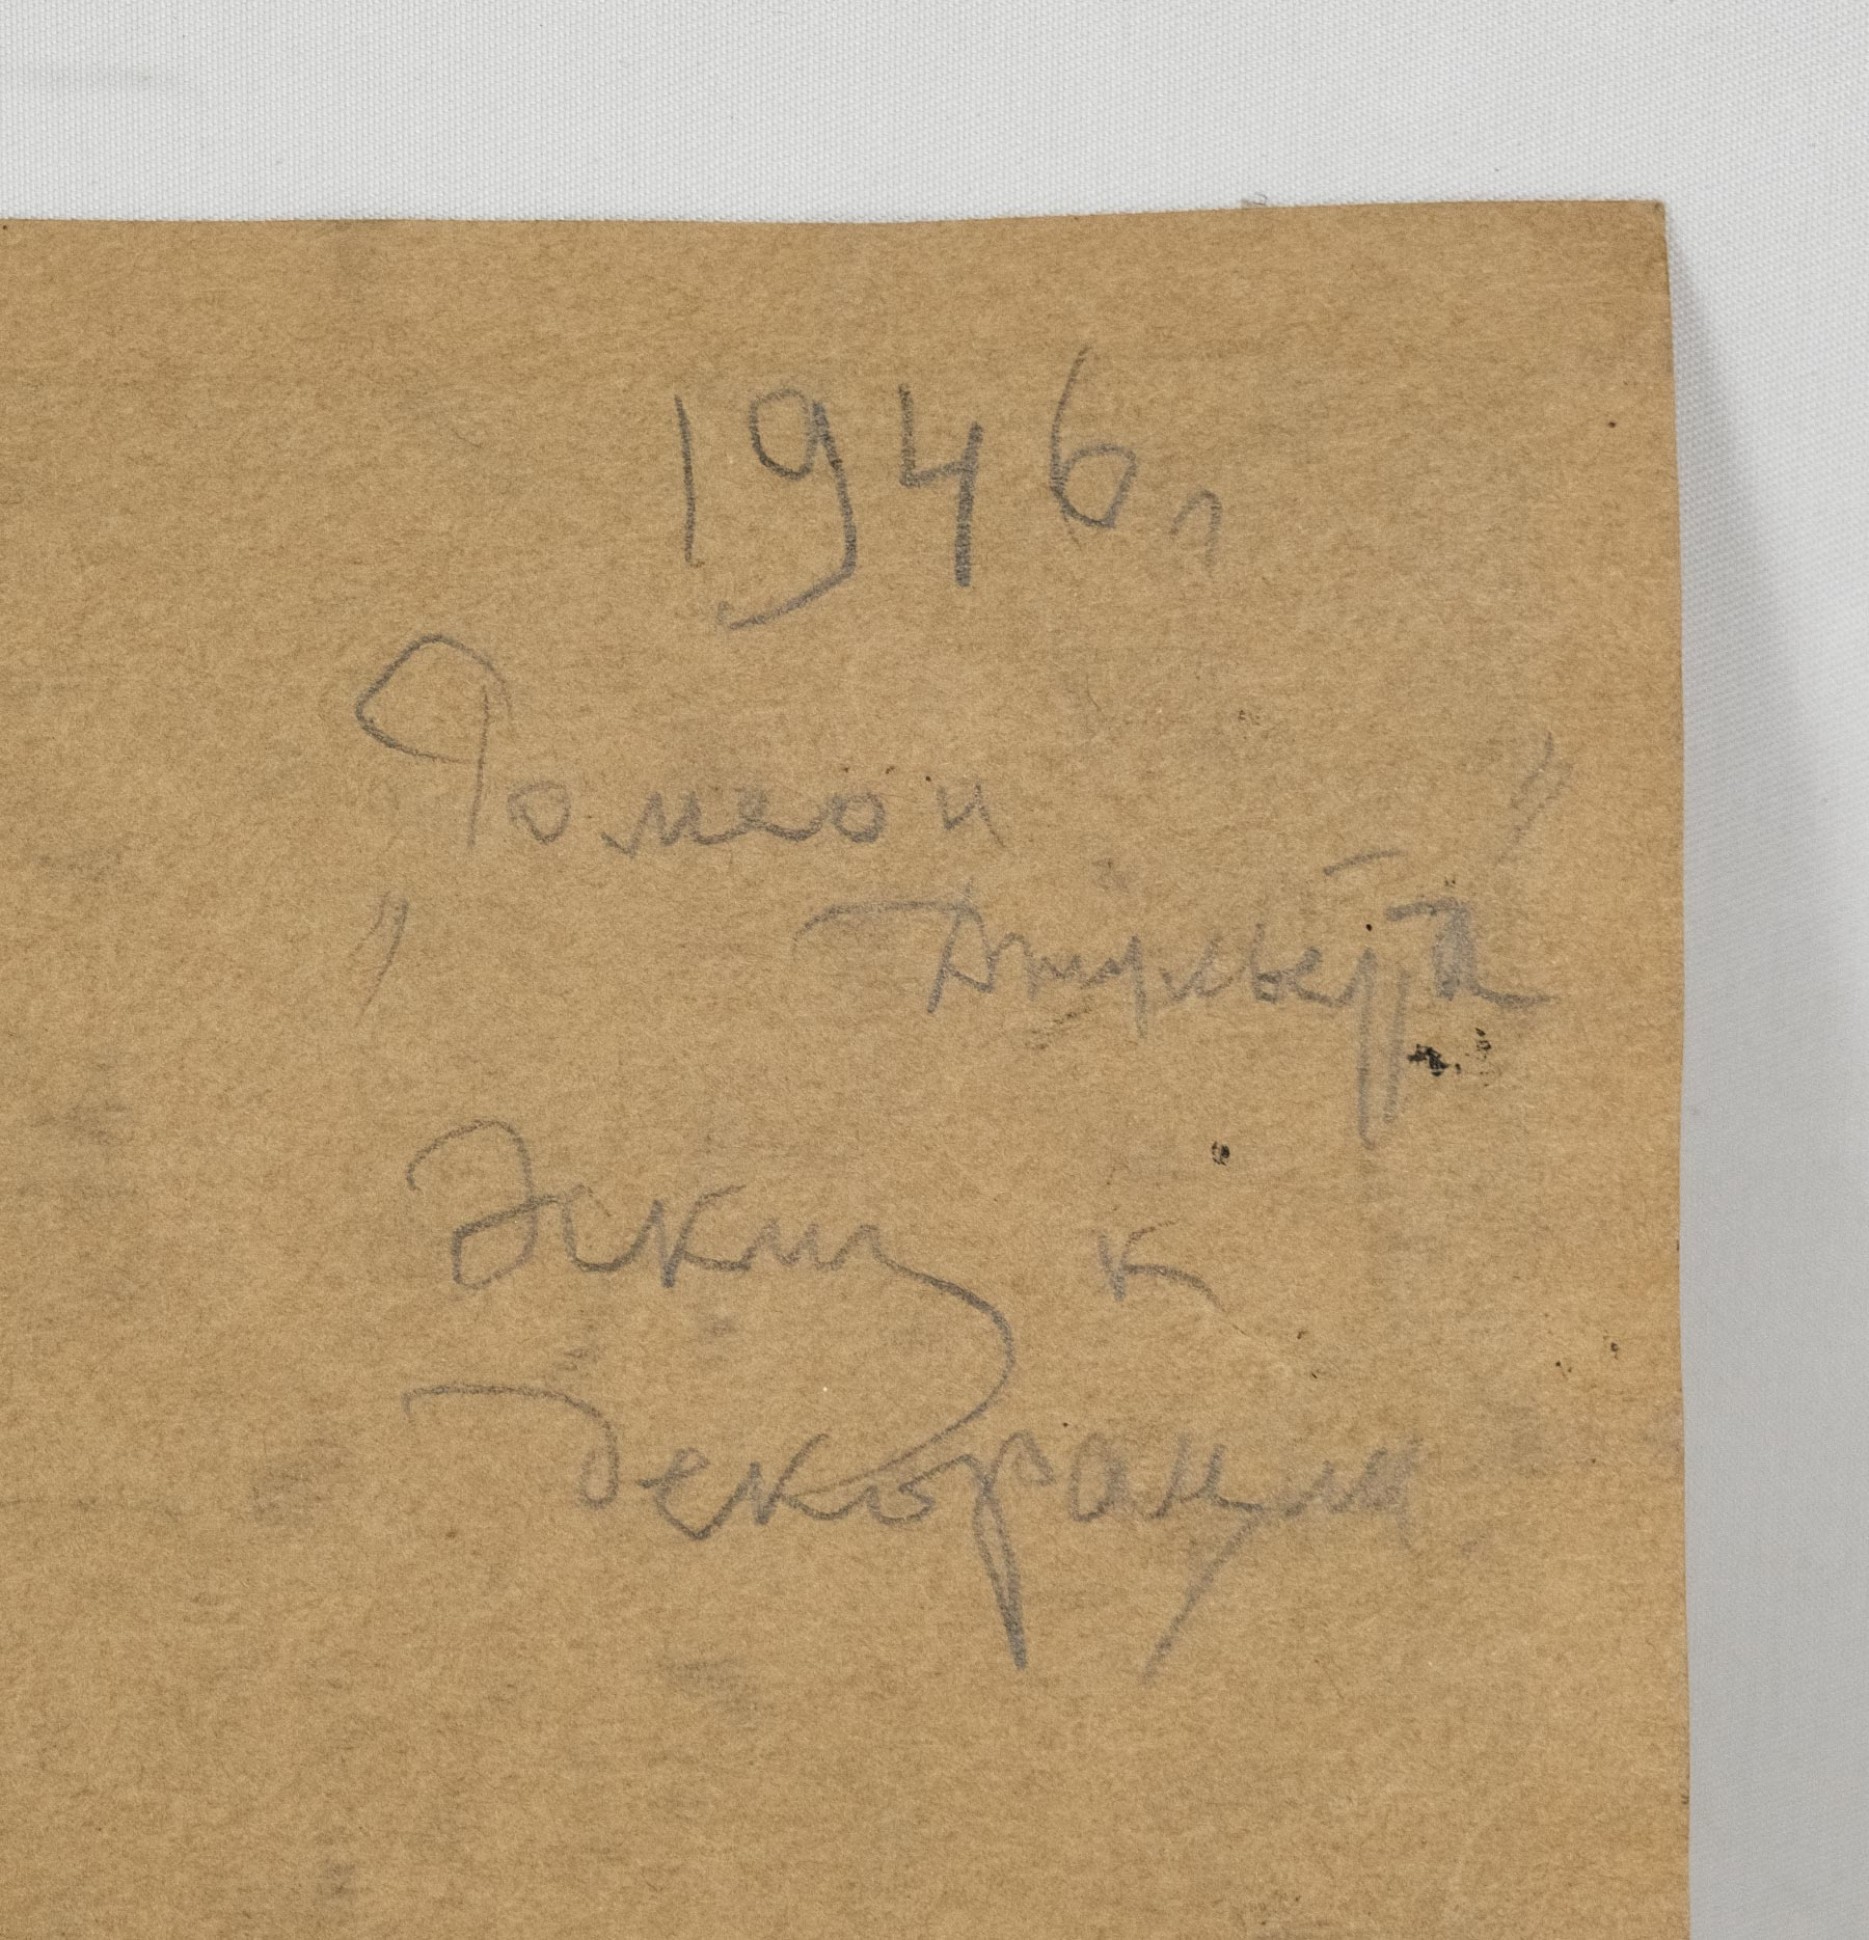 1946 г
Ромео и
" Джульетта "
Эскиз к
декорации